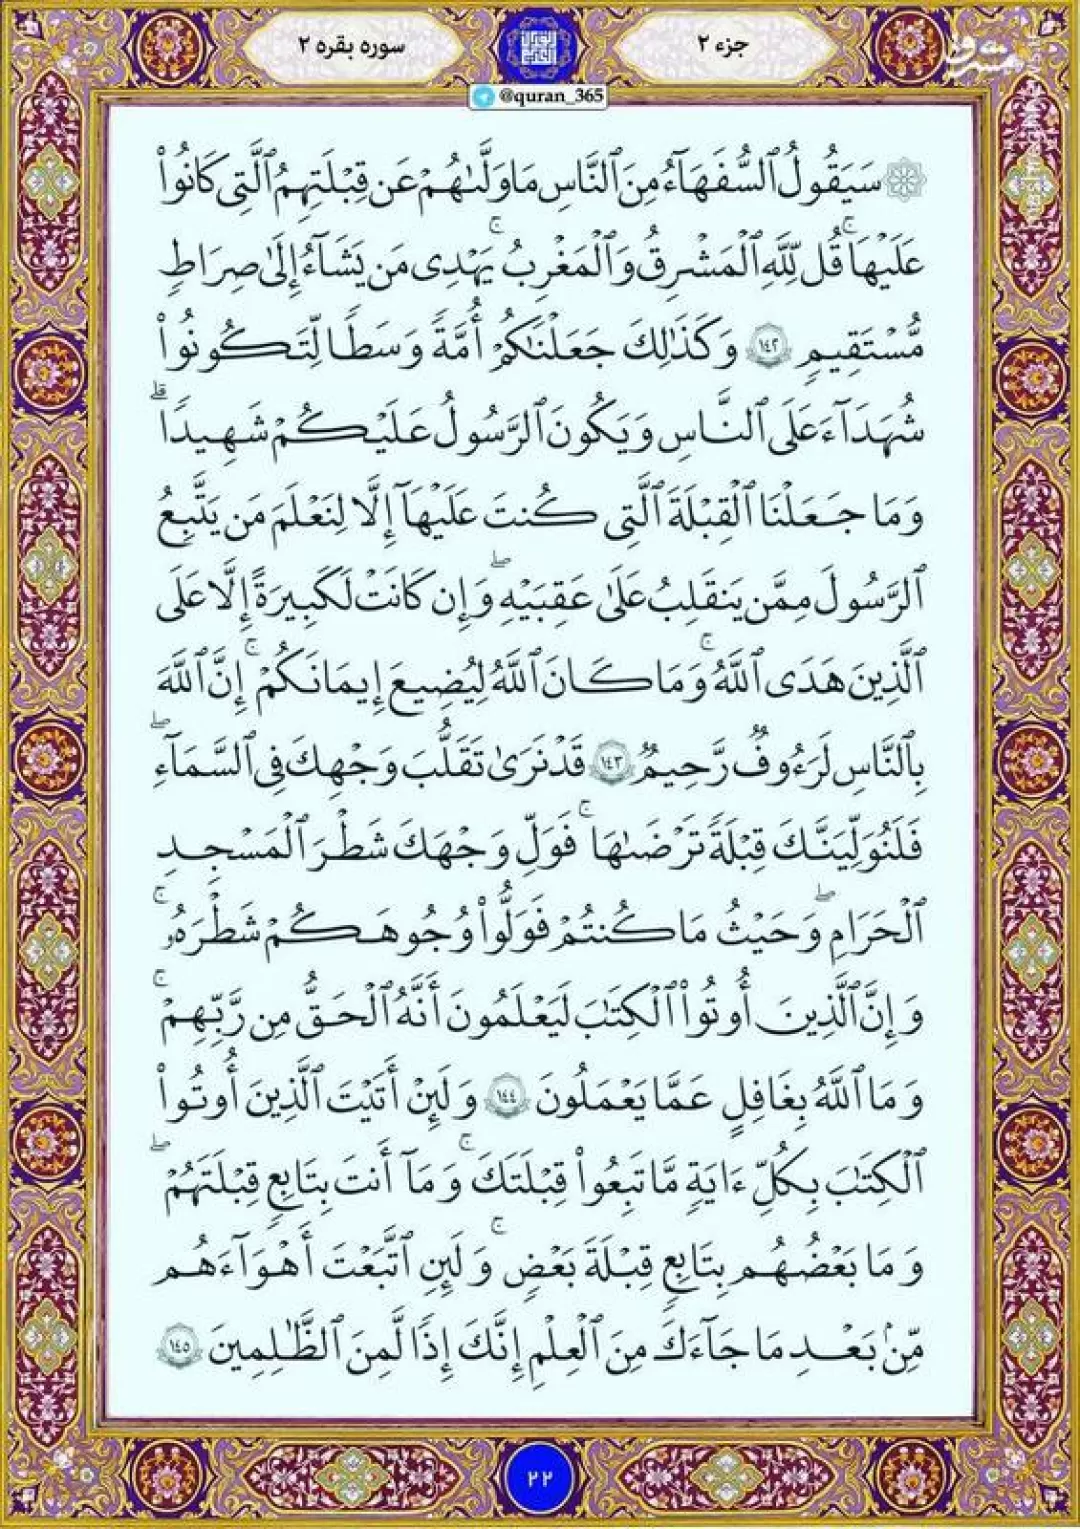 جزء ۲
سوره بقره ۲
@quran_365
سَيَقُولُ ٱلسُّفَهَآءُ مِنَ ٱلنَّاسِ مَا وَلَّىٰهُمْ عَن قِبْلَتِهِمُ ٱلَّتِى كَانُوا۟
عَلَيْهَا ۚ قُل لِّلَّهِ ٱلْمَشْرِقُ وَٱلْمَغْرِبُ ۚ يَهْدِى مَن يَشَآءُ إِلَىٰ صِرَاطٍ
مُّسْتَقِيمٍ ١٤٢ وَكَذَٰلِكَ جَعَلْنَـٰكُمْ أُمَّةً وَسَطًا لِّتَكُونُوا۟
شُهَدَآءَ عَلَى ٱلنَّاسِ وَيَكُونَ ٱلرَّسُولُ عَلَيْكُمْ شَهِيدًا ۗ
وَمَا جَعَلْنَا ٱلْقِبْلَةَ ٱلَّتِى كُنتَ عَلَيْهَآ إِلَّا لِنَعْلَمَ مَن يَتَّبِعُ
ٱلرَّسُولَ مِمَّن يَنقَلِبُ عَلَىٰ عَقِبَيْهِ ۖ وَإِن كَانَتْ لَكَبِيرَةً إِلَّا عَلَى
ٱلَّذِينَ هَدَى ٱللَّهُ ۗ وَمَا كَانَ ٱللَّهُ لِيُضِيعَ إِيمَـٰنَكُمْ ۚ إِنَّ ٱللَّهَ
بِٱلنَّاسِ لَرَءُوفٌ رَّحِيمٌ ١٤٣ قَدْ نَرَىٰ تَقَلُّبَ وَجْهِكَ فِى ٱلسَّمَآءِ ۖ
فَلَنُوَلِّيَنَّكَ قِبْلَةً تَرْضَىٰهَا ۚ فَوَلِّ وَجْهَكَ شَطْرَ ٱلْمَسْجِدِ
ٱلْحَرَامِ ۖ وَحَيْثُ مَا كُنتُمْ فَوَلُّوا۟ وُجُوهَكُمْ شَطْرَهُۥ ۗ
وَإِنَّ ٱلَّذِينَ أُوتُوا۟ ٱلْكِتَـٰبَ لَيَعْلَمُونَ أَنَّهُ ٱلْحَقُّ مِن رَّبِّهِمْ ۗ
وَمَا ٱللَّهُ بِغَـٰفِلٍ عَمَّا يَعْمَلُونَ ١٤٤ وَلَئِنْ أَتَيْتَ ٱلَّذِينَ أُوتُوا۟
ٱلْكِتَـٰبَ بِكُلِّ ءَايَةٍ مَّا تَبِعُوا۟ قِبْلَتَكَ ۚ وَمَآ أَنتَ بِتَابِعٍ قِبْلَتَهُمْ ۚ
وَمَا بَعْضُهُم بِتَابِعٍ قِبْلَةَ بَعْضٍ ۚ وَلَئِنِ ٱتَّبَعْتَ أَهْوَآءَهُم
مِّنۢ بَعْدِ مَا جَآءَكَ مِنَ ٱلْعِلْمِ إِنَّكَ إِذًا لَّمِنَ ٱلظَّـٰلِمِينَ ١٤٥
۲۲